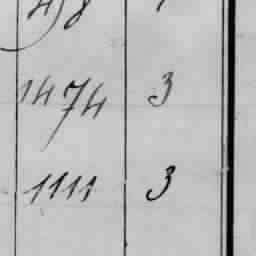 1474 3
1111 3